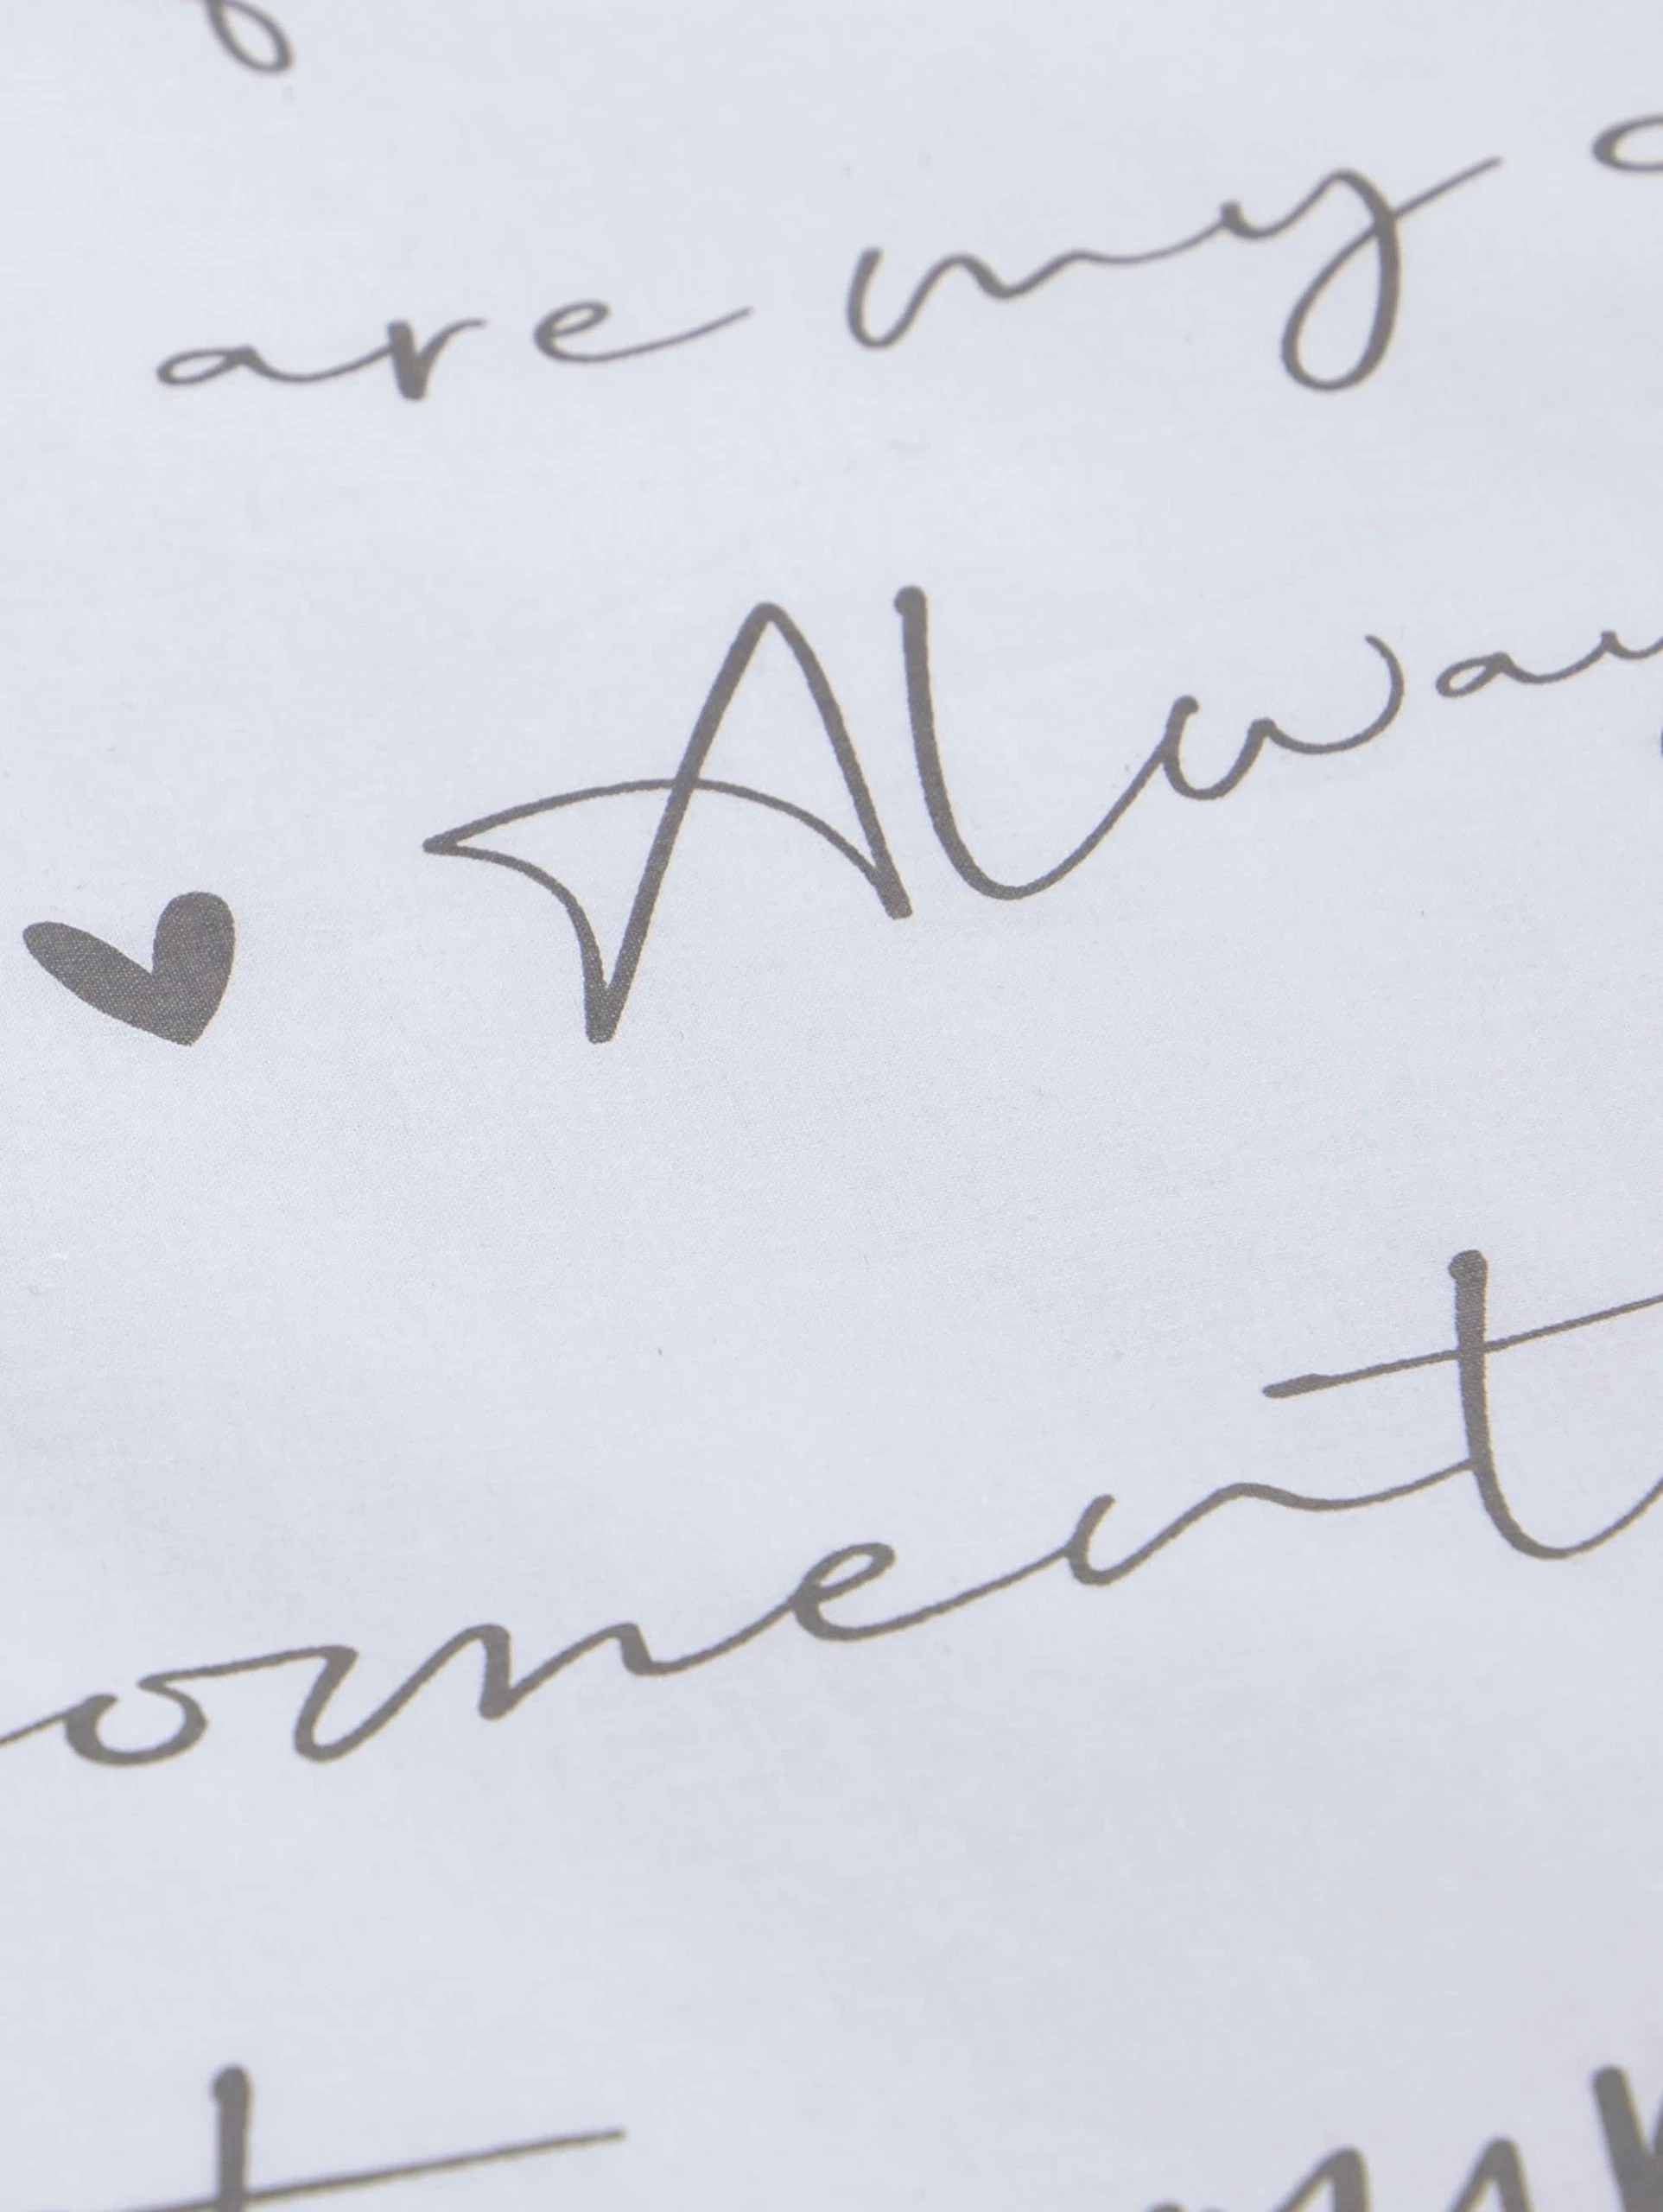 are my
Alway
oment